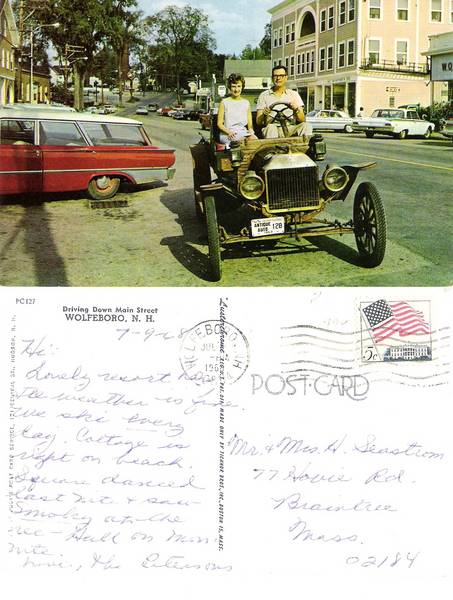 ANTIQUE
AUTO 128
PC127
Driving Down Main Street
WOLFEBORO, N. H.
7-9-68
Hi:
Lovely resort
The weather is fine.
We ski every
day. Cottage is
right on beach.
Square danced
last nite & saw
Smoky at the
rec-Hall on Mon.
nite.
Love, the
WOLFEBORO, N.H.
JUL
196
5c
POST CARD
Mr. & Mrs. H. Seastrom
77 Howie Rd.
Braintree
Mass.
02184